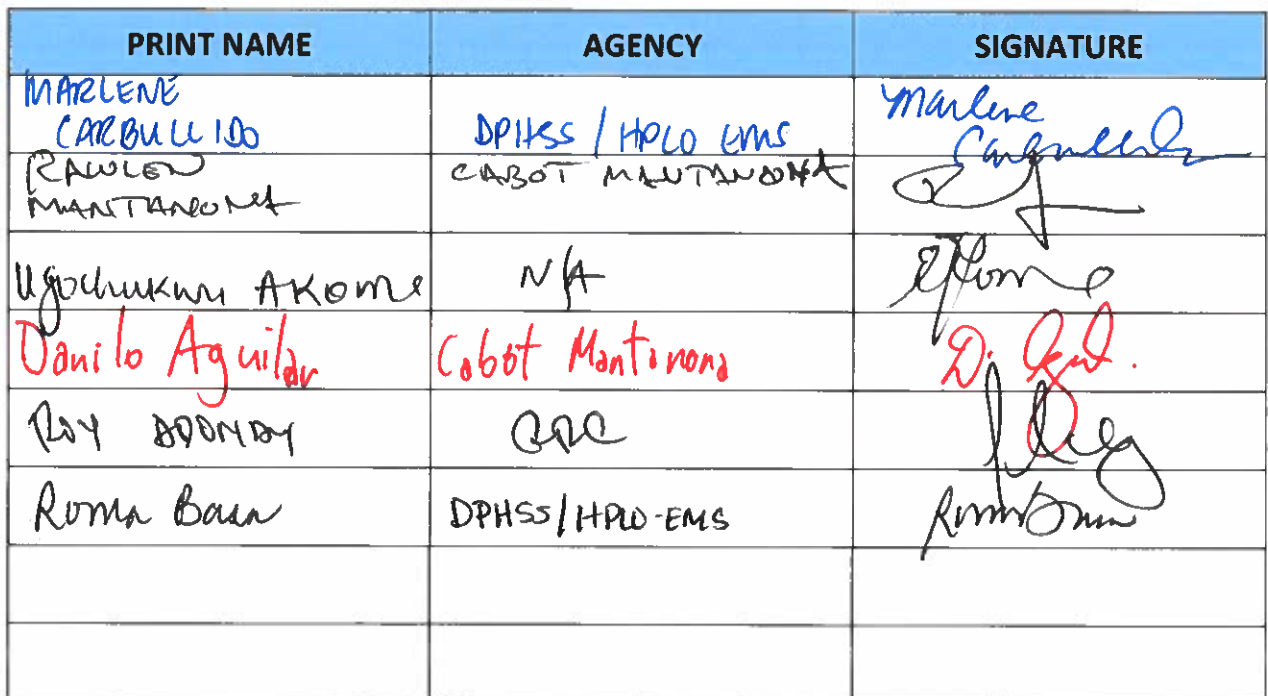 PRINT NAME AGENCY SIGNATURE
MARLENE
CARBULLIDO DPHSS / HPLO EMS Marlene
Carbullido
RAWLEN CABOT MANTANONA
MANTANONA
Ugochukwu AKOMA N/A
Danilo Aguilar Cabot Mantanona
ROY
Roma Basa DPHSS/HPLO-EMS Roma Basa